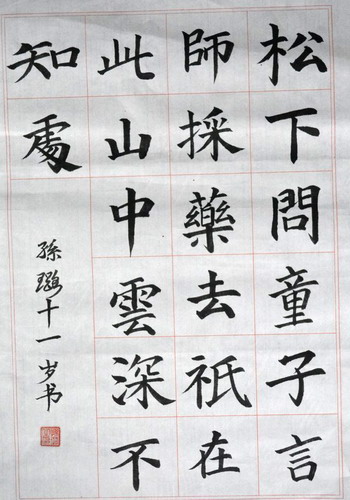 松下問童子言
師採藥去祇在
此山中雲深不
知處
孫璐十一岁书